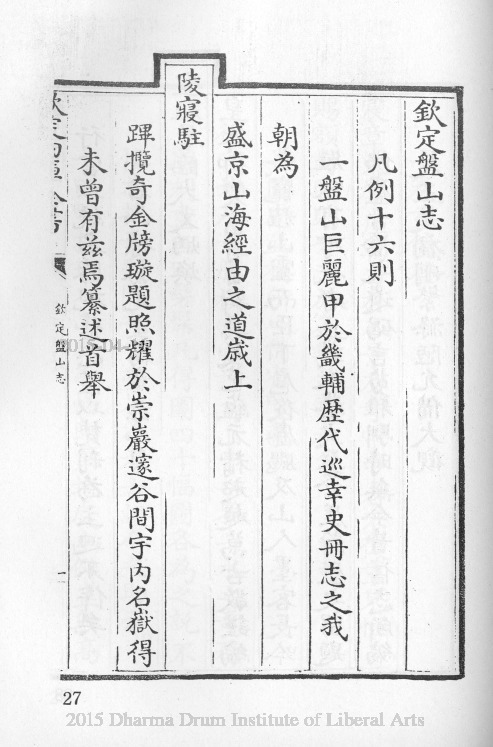 欽定盤山志
凡例十六則
一盤山巨麗甲於畿輔歴代巡幸史冊志之我
朝為
盛京山海經由之道嵗上
陵寢駐
蹕攬奇金牓璇題照耀於崇巖邃谷間宇内名嶽得
未曾有兹焉纂述首舉
欽定四庫全書
欽定盤山志
一
27
2015 Dharma Drum Institute of Liberal Arts